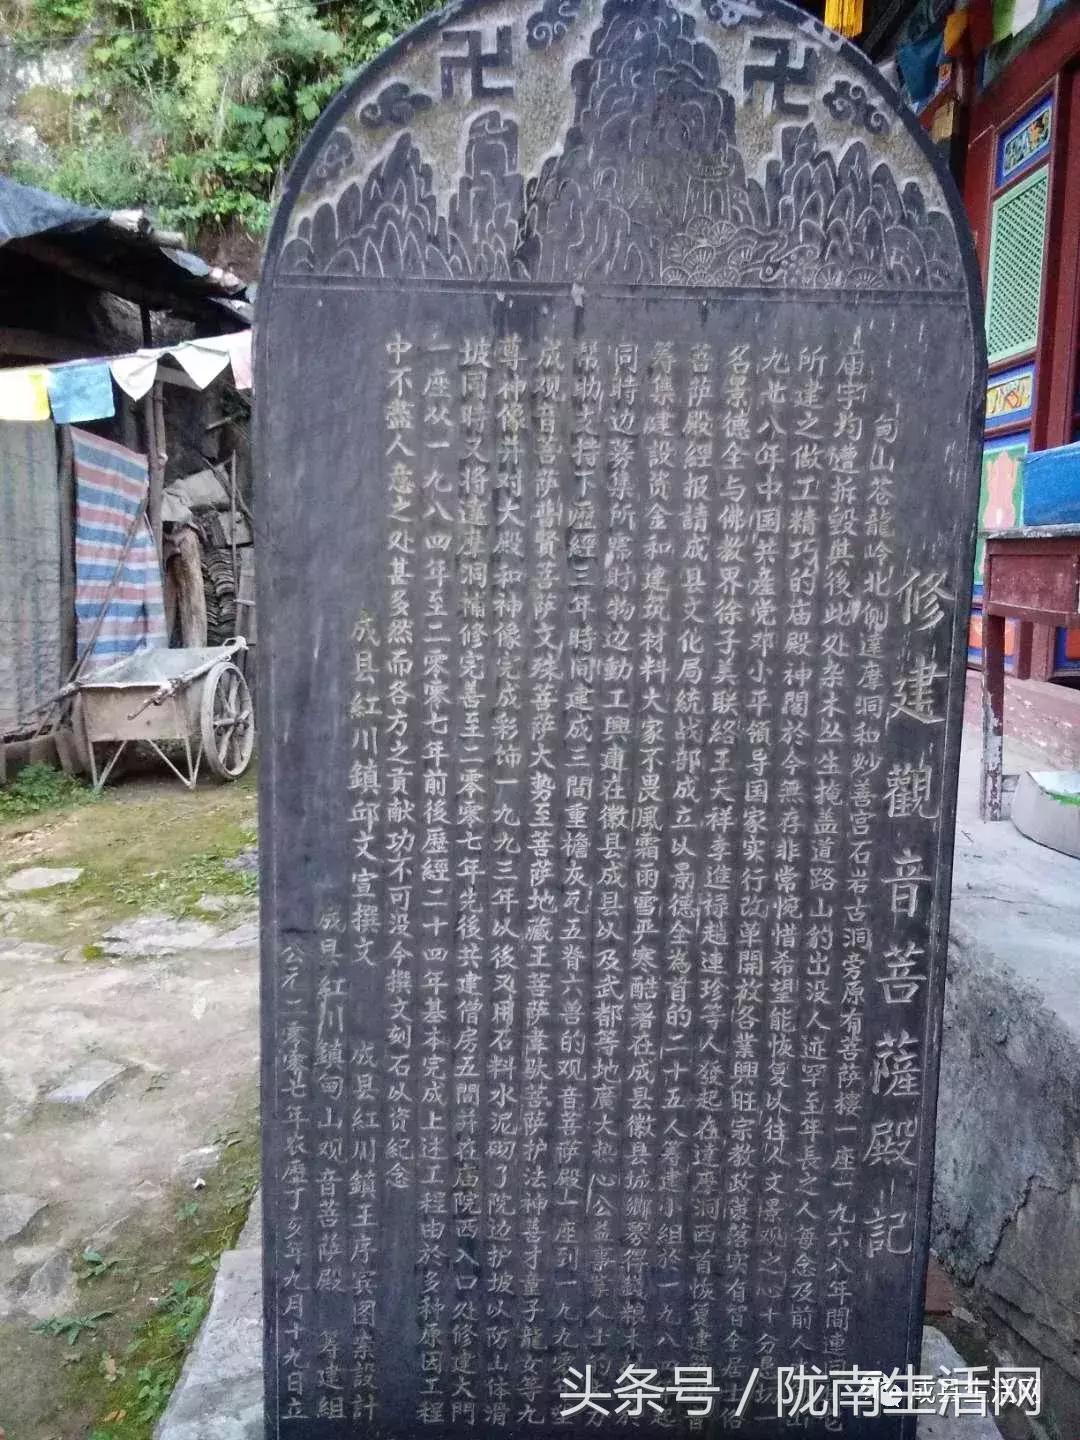 修建觀音菩薩殿記
甸山苍龍岭北侧達摩洞和妙善宫石岩古洞旁原有菩萨樓一座一九六八年間連同其它
庙宇均遭拆毀其後此处杂木丛生掩盖道路山豹出没人迹罕至年長之人每念及前人
所建之做工精巧的庙殿神閣於今無存非常惋惜希望能恢复以往人文景观之心十分恳切一
九七八年中国共產党邓小平領导国家实行改革開放各業興旺宗教政策落实有智全居士俗
名景德全与佛教界徐子美联络王天祥李進禄趙連珍等人發起在達摩洞西首恢复建
菩萨殿經报請成县文化局統战部成立以景德全為首的二十五人筹建小組於一九八四
筹集建設资金和建筑材料大家不畏風霜雨雪严寒酷署在成县徽县城鄉募得錢粮木
同時边募集所需貯物边動工興建在徽县成县以及武都等地廣大热心公益事業人士的
帮助支持下歷經三年時间建成三間重檐灰瓦五脊六兽的观音菩萨殿一座到一九九
成观音菩萨普賢菩萨文殊菩萨大势至菩萨地藏王菩萨韋駄菩萨护法神善才童子龍女等九
尊神像并对大殿和神像完成彩饰一九九三年以後又用石料水泥砌了院边护坡以防山体滑
坡同時又将達摩洞補修完善至二零零七年先後共建僧房五間并在庙院西入口处修建大門
一座从一九八四年至二零零七年前後歷經二十四年基本完成上述工程由於多种原因工程
中不盡人意之处甚多然而各方之貢献功不可没今撰文刻石以资紀念
成县紅川鎮邱文宣撰文 成县紅川鎮王序宾图案設計
成县紅川鎮甸山观音菩萨殿 筹建組
公元二零零七年农歷丁亥年九月十九日立
头条号/陇南生活网